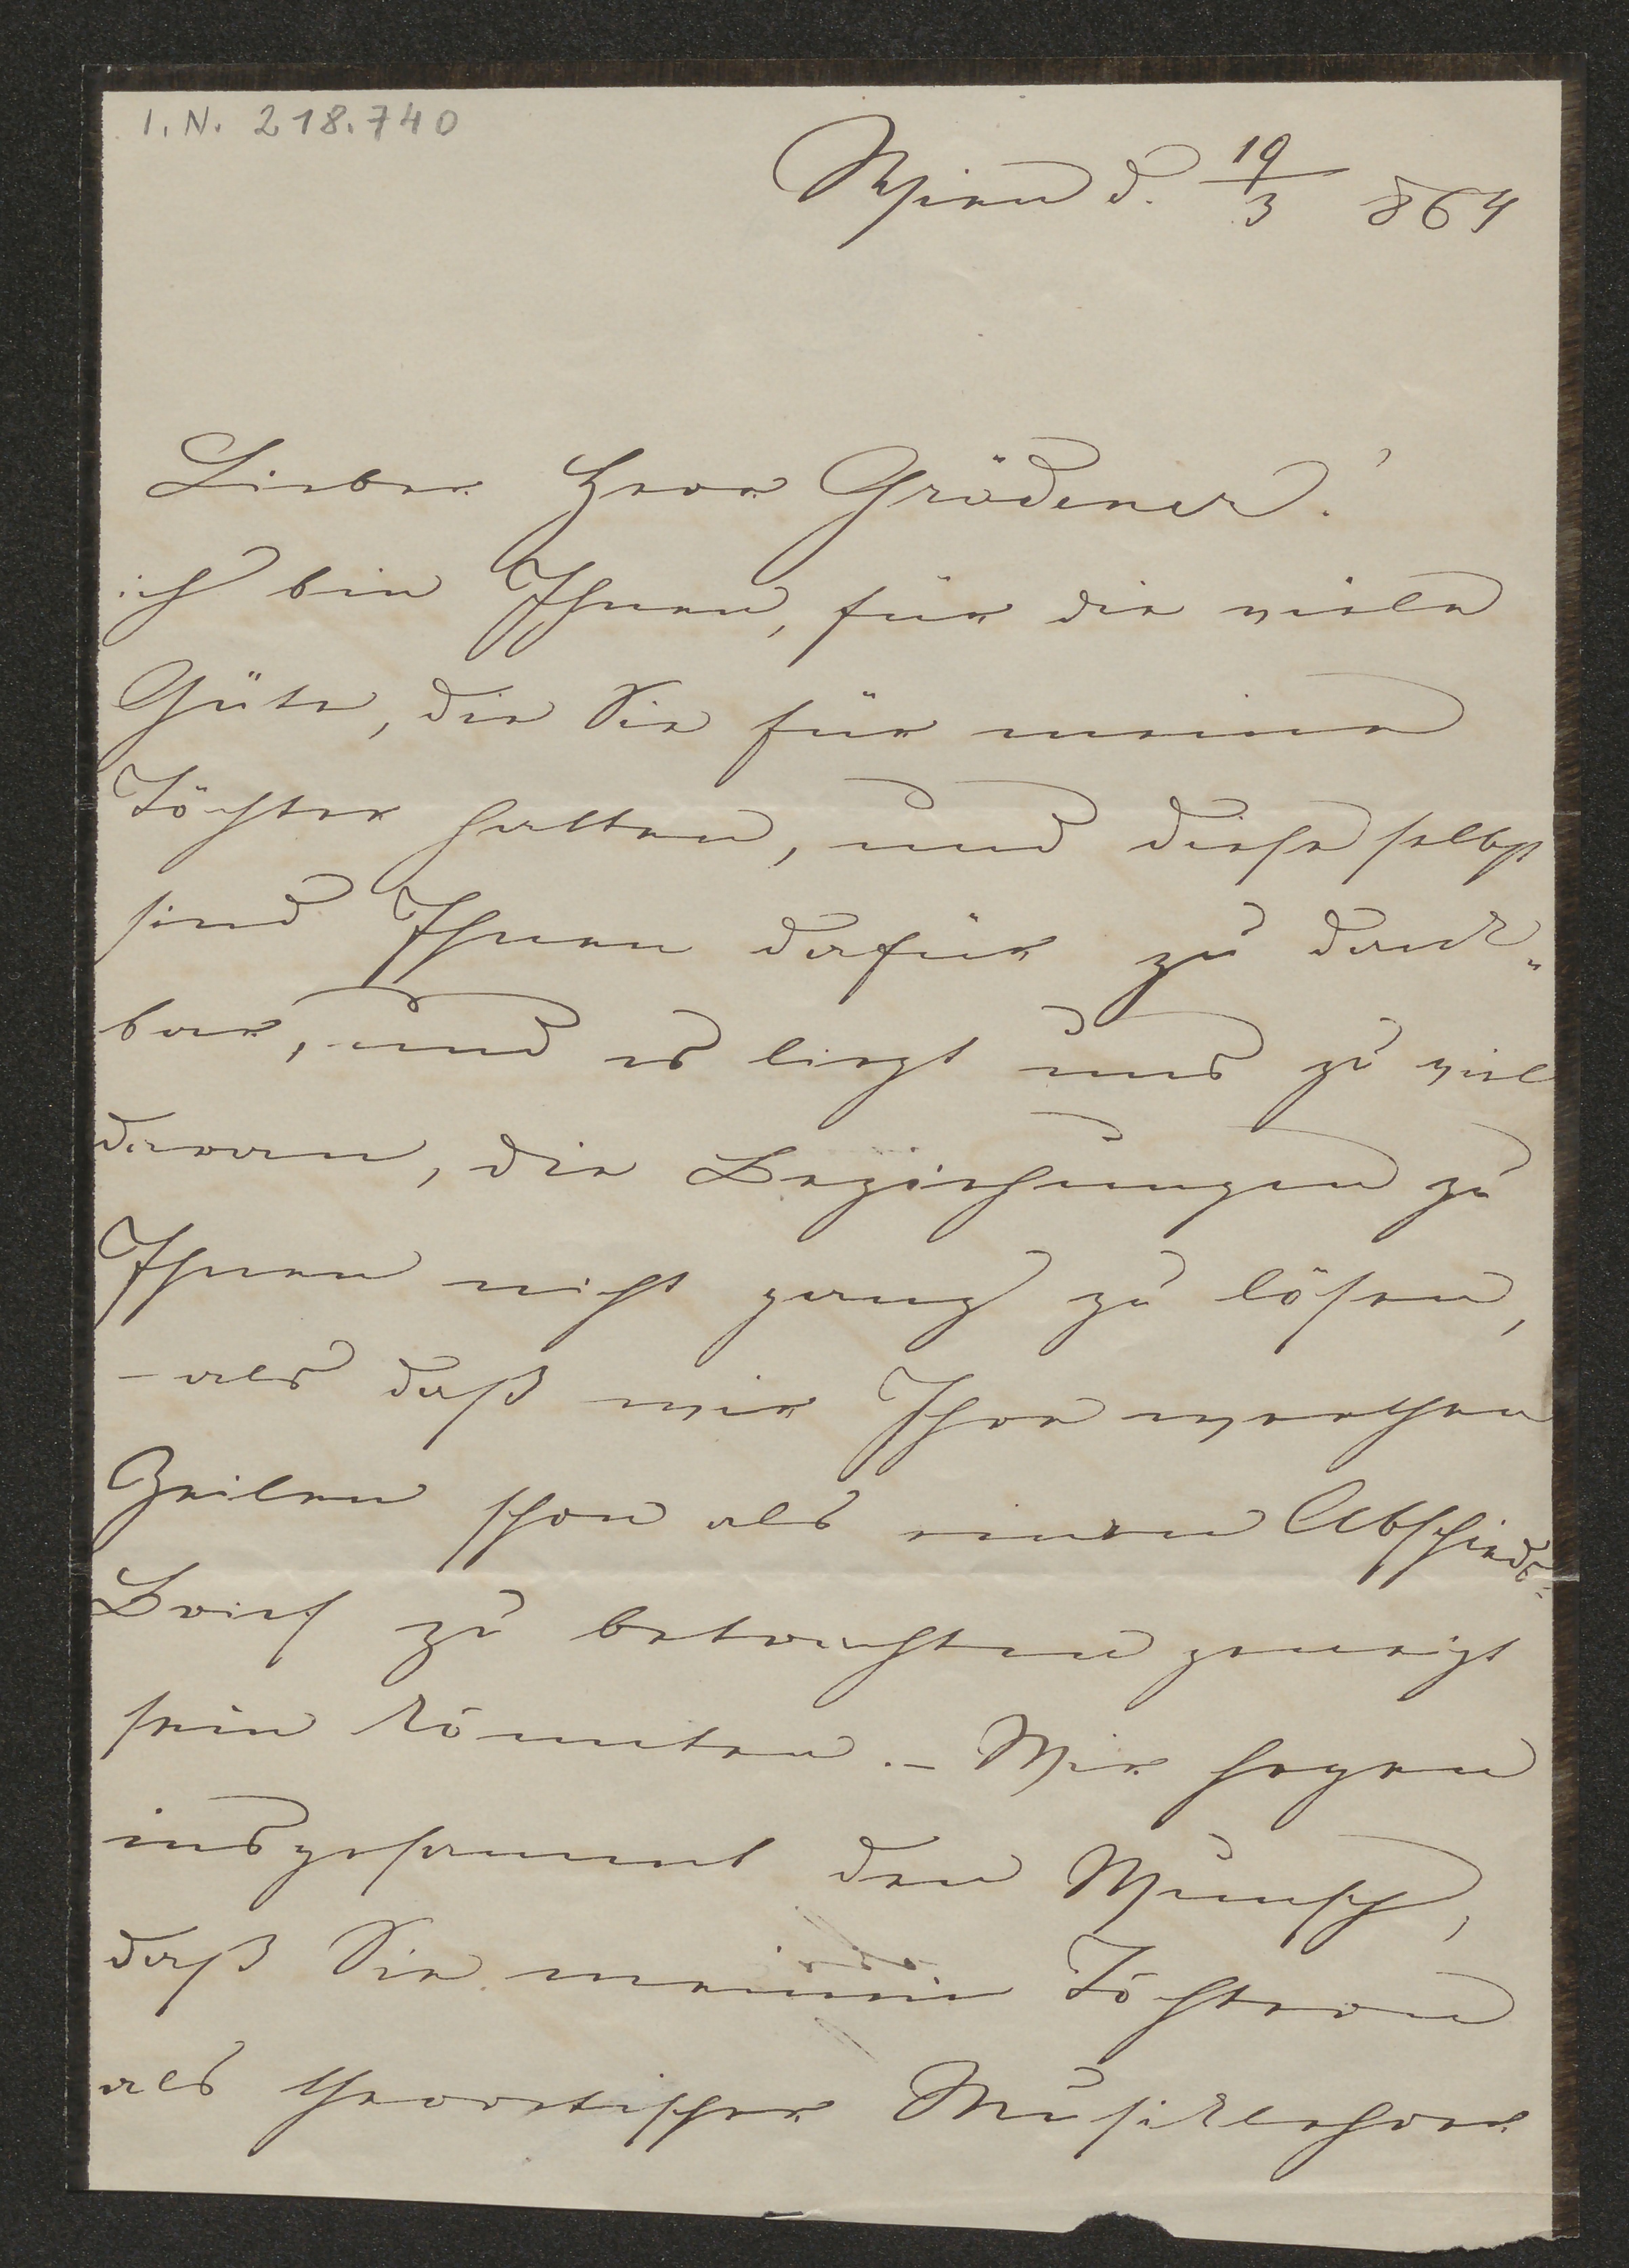 I.N. 218.740
Wien d. 19/3 864
Lieber Herr Grädener!
ich bin Ihnen, für die viele
Güte, die Sie für meine
Töchter hatten, und diese selbst
sind Ihnen dafür zu dank„
bar, und es liegt uns zu viel
daran, die Beziehungen zu
Ihnen nicht ganz zu lösen,
– als daß wir Ihre werthen
Zeilen schon als einen Abschieds„
Brief zu betrachten geneigt
sein könnten. – Wir hegen
insgesammt den Wunsch,
daß Sie meinen Töchtern
als theoretischer Musiklehrer